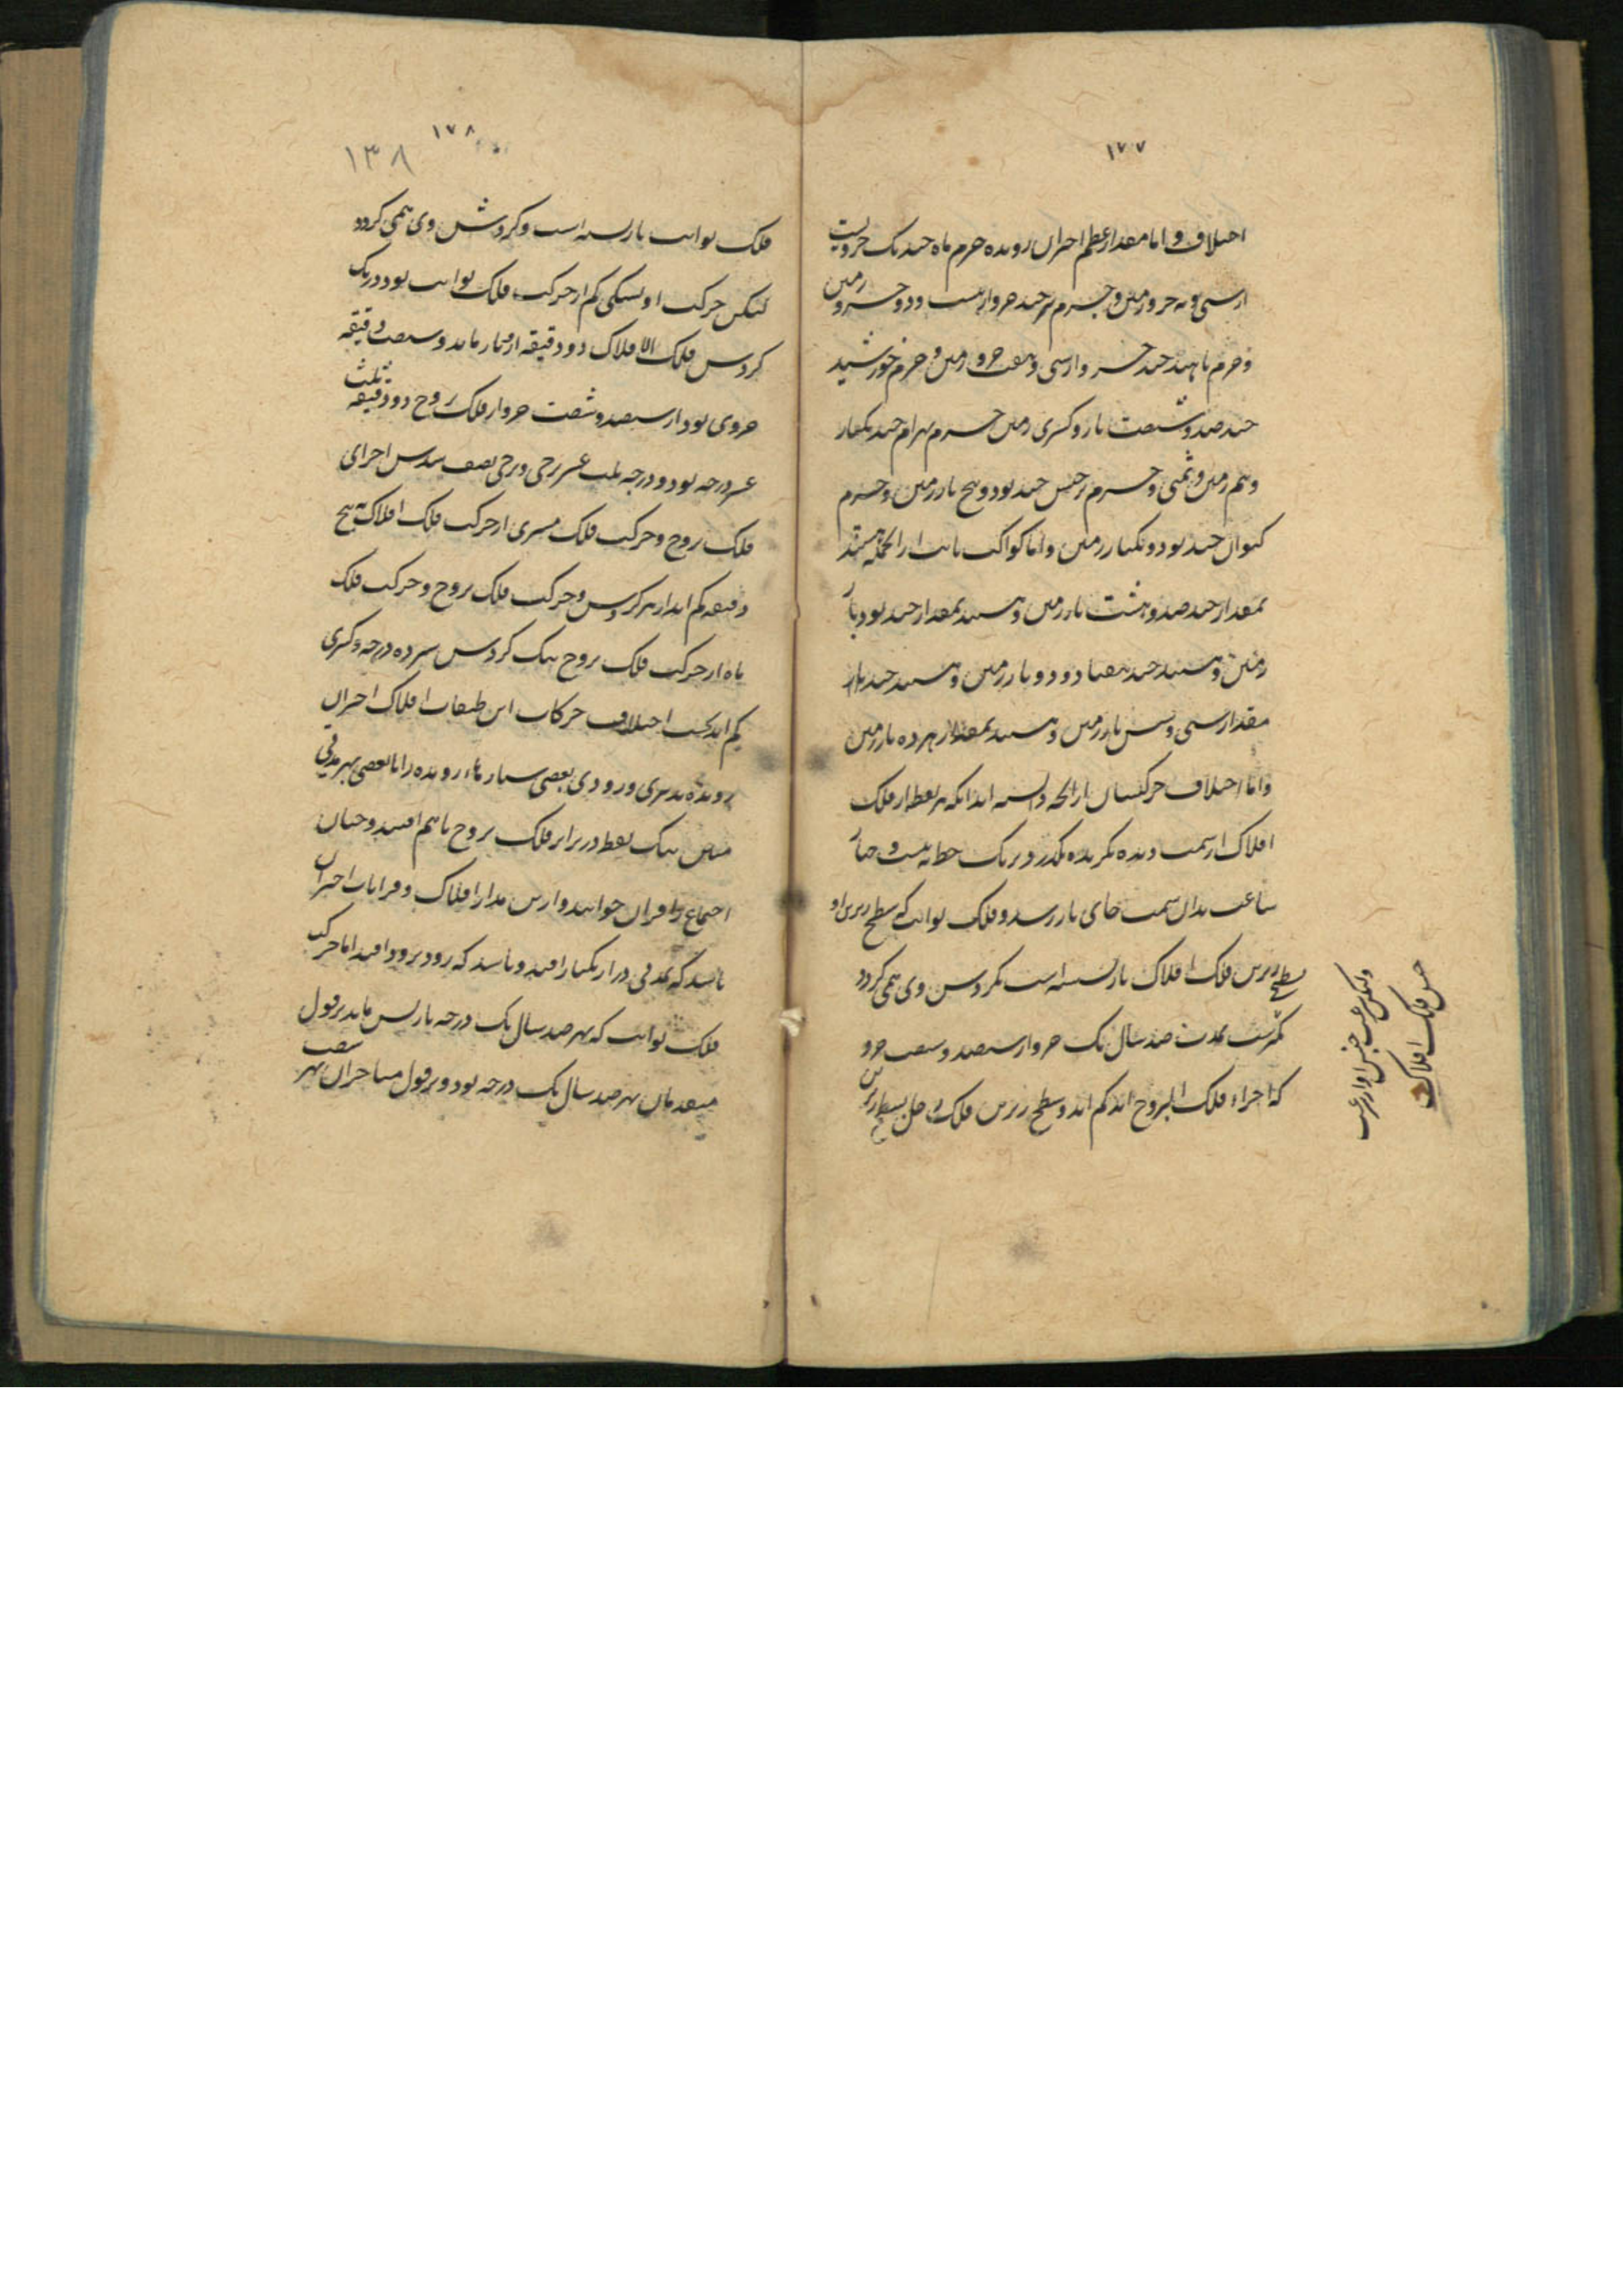 ۱۷۷
اختلاف و اما مقدار عظم اجرام رونده جرم ماه چند یک جزویست
از سی و نه جزو زمین و جرم تیر چند جزو از بیست و دو جزو زمین
و جرم ناهید چند جزو از سی و هفت جزو زمین و جرم خورشید
چند صد و شصت بار و کسری زمین جرم بهرام چند یکبار
و نیم زمین و ثمنی و جرم برجیس چند نود و پنج بار زمین و جرم
کیوان چند نود و یکبار زمین و اما کواکب ثابت از آنجمله هستند
بمقدار چند صد و هشت بار زمین و هستند بمقدار چند نود بار
زمین و هستند چند هفتاد و دو بار زمین و هستند چند
مقدار سی و شش بار زمین و هستند بمقدار هژده بار زمین
و اما اختلاف حرکتشان از آنچه دانسته اند آنکه هر نقطه از فلک
افلاک از سمت دیده نگرنده بگذرد بر یک خط به بیست و چهار
ساعت بدان سمت جای باز رسد و فلک ثوابت که سطح زبرین او
بسطح زیرین فلک افلاک باز بسته است بگردش وی همی گردد
بمدت صد سال یک جزو از سیصد و شصت جزو
که اجزاء فلک البروج اند کم اند و سطح زبرین فلک زحل بسطح زیرین
جنبش فلک افلاک
۱۷۸
۱۳۸
فلک ثوابت باز بسته است و گردش وی همی گردد
لیکن حرکت او بسبکی کم از حرکت فلک ثوابت بود در یک
گردش فلک الافلاک دو دقیقه از باز ماند و شصت دقیقه
جزوی بود از سیصد و شصت جزو از فلک بروج دو دقیقه ثلث
عشر درجه بود و درجه ثلث عشر برجی و برجی نصف سدس اجزای
فلک بروج و حرکت فلک مشتری از حرکت فلک افلاک پنج
دقیقه کم اند از هر گردش و حرکت فلک بروج و حرکت فلک
ماه از حرکت فلک بروج بیک گردش سیزده درجه و کسری
کم اند بحسب اختلاف حرکات این طبقات افلاک اجرام
رونده بدیری و زودی بعضی ستارهاء رونده را با بعضی بهر مدتی
معین بیک نقطه در برابر فلک بروج با هم افتند و چنان
اجتماع را قران خوانند و ازین مدار افلاک و قرانات اجرام
باشد که بمدتی دراز یکبار افتد و باشد که زود بزود افتد اما حرکت
فلک ثوابت که بهر صد سال یک درجه باز پس ماند بر قول
متقدمان بهر صد سال یک درجه بود و بر قول متاخران بهر شصت